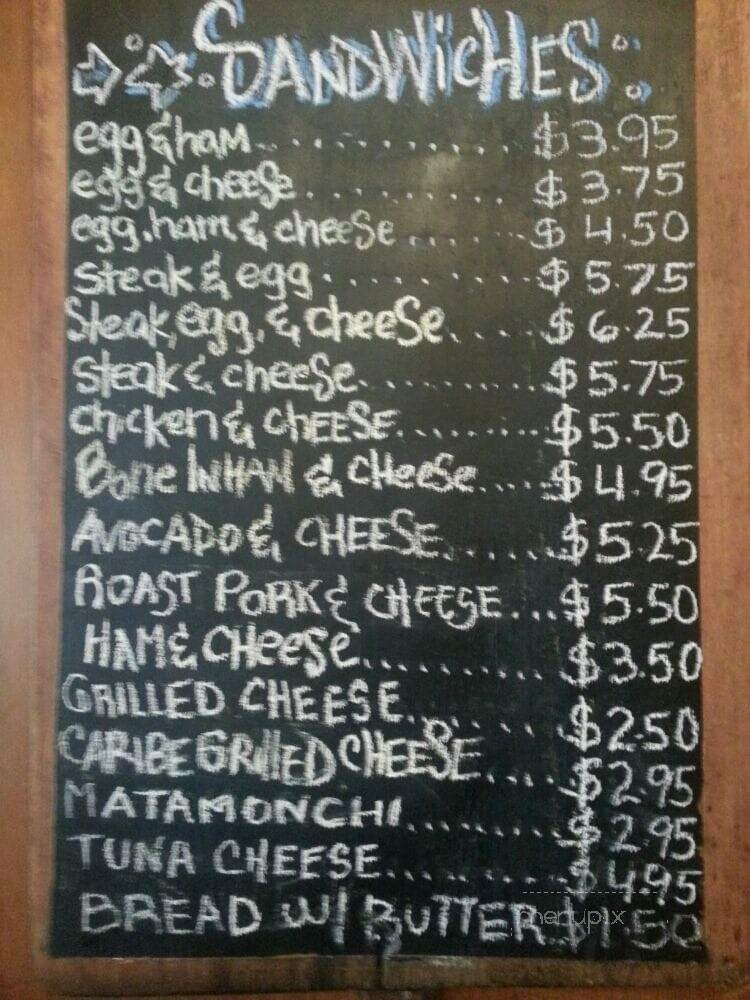 SANDWICHES
egg & ham.............$3.95
egg & cheese...........$3.75
egg.ham & cheese.....$4.50
steak & egg..........$5.75
Steak, egg, & cheese.....$6.25
steak & cheese..........$5.75
chicken & cheese.........$5.50
Bone IN HAM & cHeese.....$4.95
AVOCADO & CHEESE.......$5.25
ROAST PORK & CHEESE...$5.50
HAM & CHeese..........$3.50
GRILLED CHEESE........$2.50
CARIBE GRILLED CHEESE....$2.95
MATAMONCHI..........$2.95
TUNA CHEESE.........$4.95
BREAD W/ BUTTER $1.50
menupix